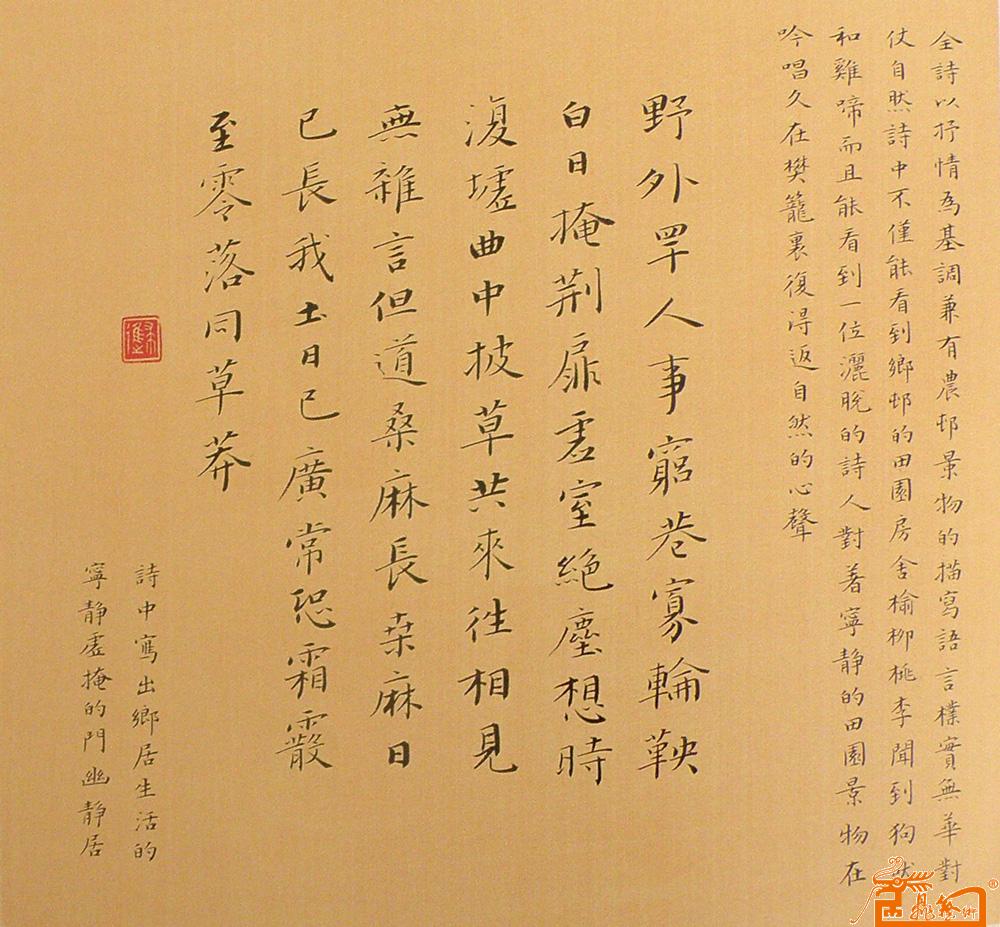 全詩以抒情為基調兼有農邨景物的描寫語言樸實無華對
仗自然詩中不僅能看到鄉邨的田園房舍榆柳桃李聞到狗吠
和雞啼而且能看到一位灑脫的詩人對著寧静的田園景物在
吟唱久在樊籠裏復得返自然的心聲
野外罕人事窮巷寡輪鞅
白日掩荆扉虛室絕塵想時
復墟曲中披草共來往相見
無雜言但道桑麻長桑麻日
已長我土日已廣常恐霜霰
至零落同草莽
詩中寫出鄉居生活的
寧静虛掩的門幽静居